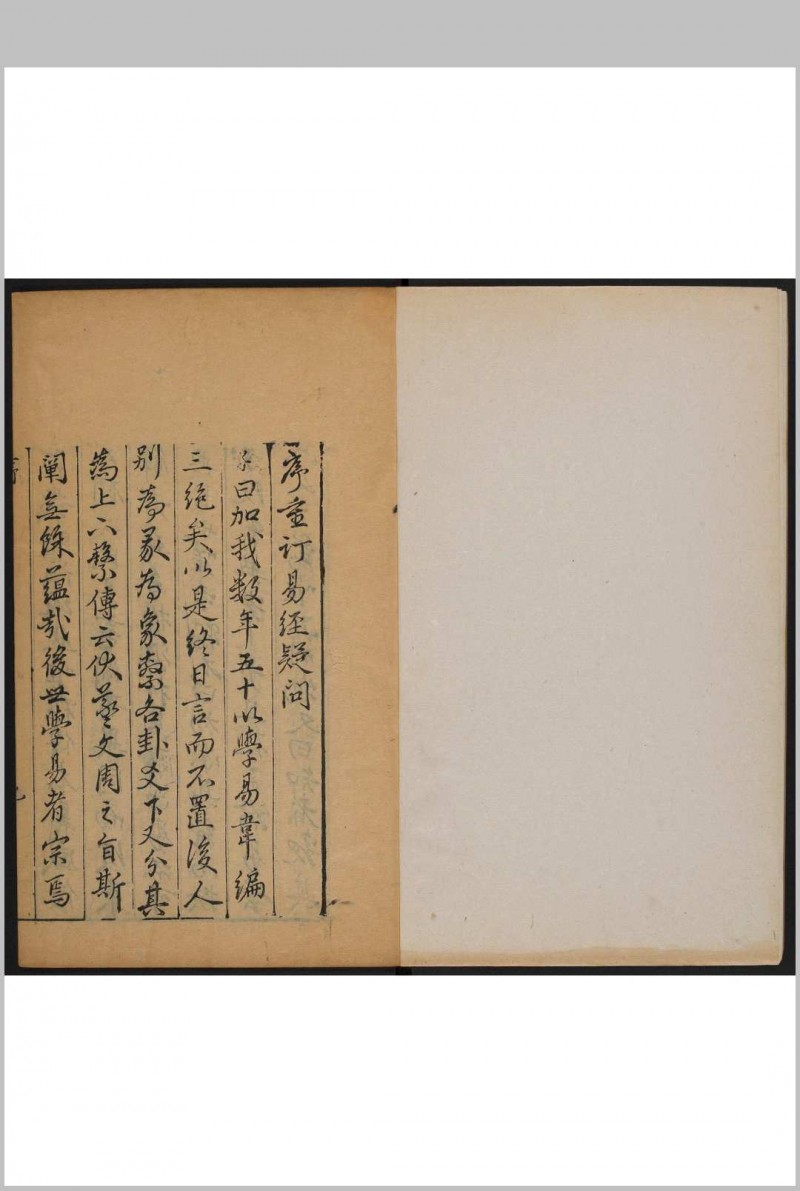 序重訂易經疑問
子曰加我數年五十以學易韋編
三絶矣以是終日言而不置後人
別為彖為象繫各卦爻下又分其
為上下繫傳云伏羲文周之旨斯
闡無餘蘊哉後世學易者宗焉
序